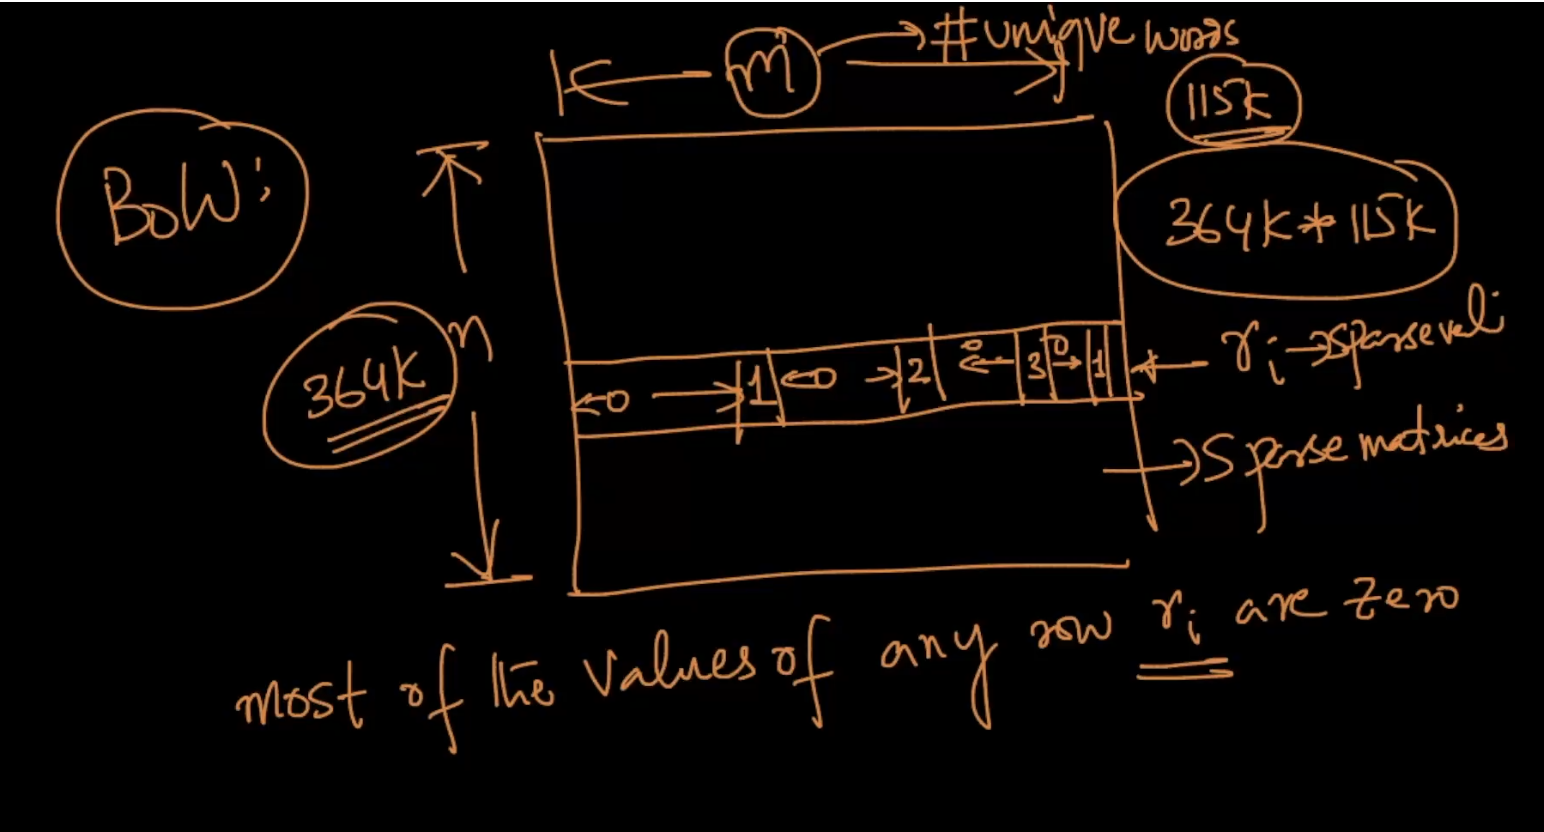 m → #unique words
115K
BoW:
364K * 115K
n
364K
←0→ 1 ←0→ 2 ←0 3 0→ 1
ri → sparse
→ Sparse matrices
most of the values of any row ri are zero